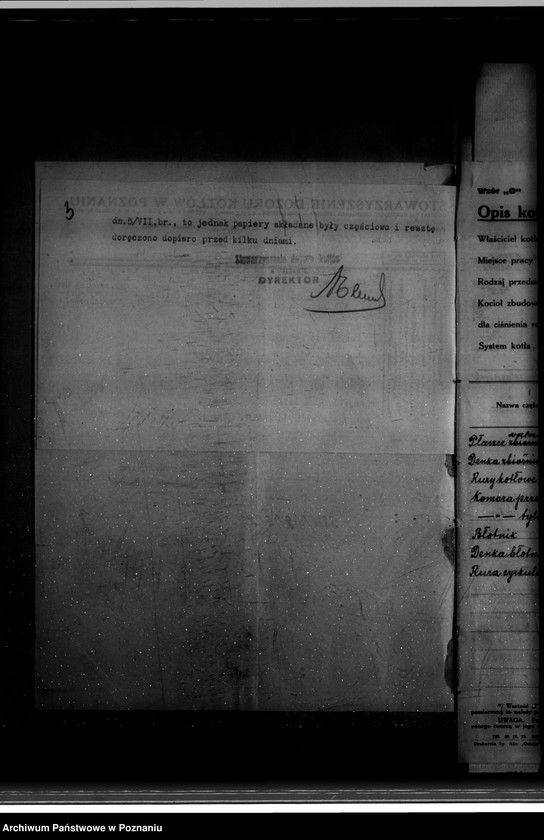 3
STOWARZYSZENIE DOZORU KOTŁÓW W POZNANIU
dn.5/VII.br., to jednak papiery składane były częściowo i resztę
doręczono dopiero przed kilku dniami.
Stowarzyszenie dozoru kotłów
DYREKTOR
Wzór „O"
Opis ko
Właściciel kotł
Miejsce pracy
Rodzaj przedsi
Kocioł zbudow
dla ciśnienia ro
System kotła
Nazwa częśc
Płaszcz
Denka zbiorni
Rury kotłowe
Komora prze
— „ — tyl
Błotnik
Denka błotn
Rura cyrkula
*) Wartość
UWAGA.
Archiwum Państwowe w Poznaniu